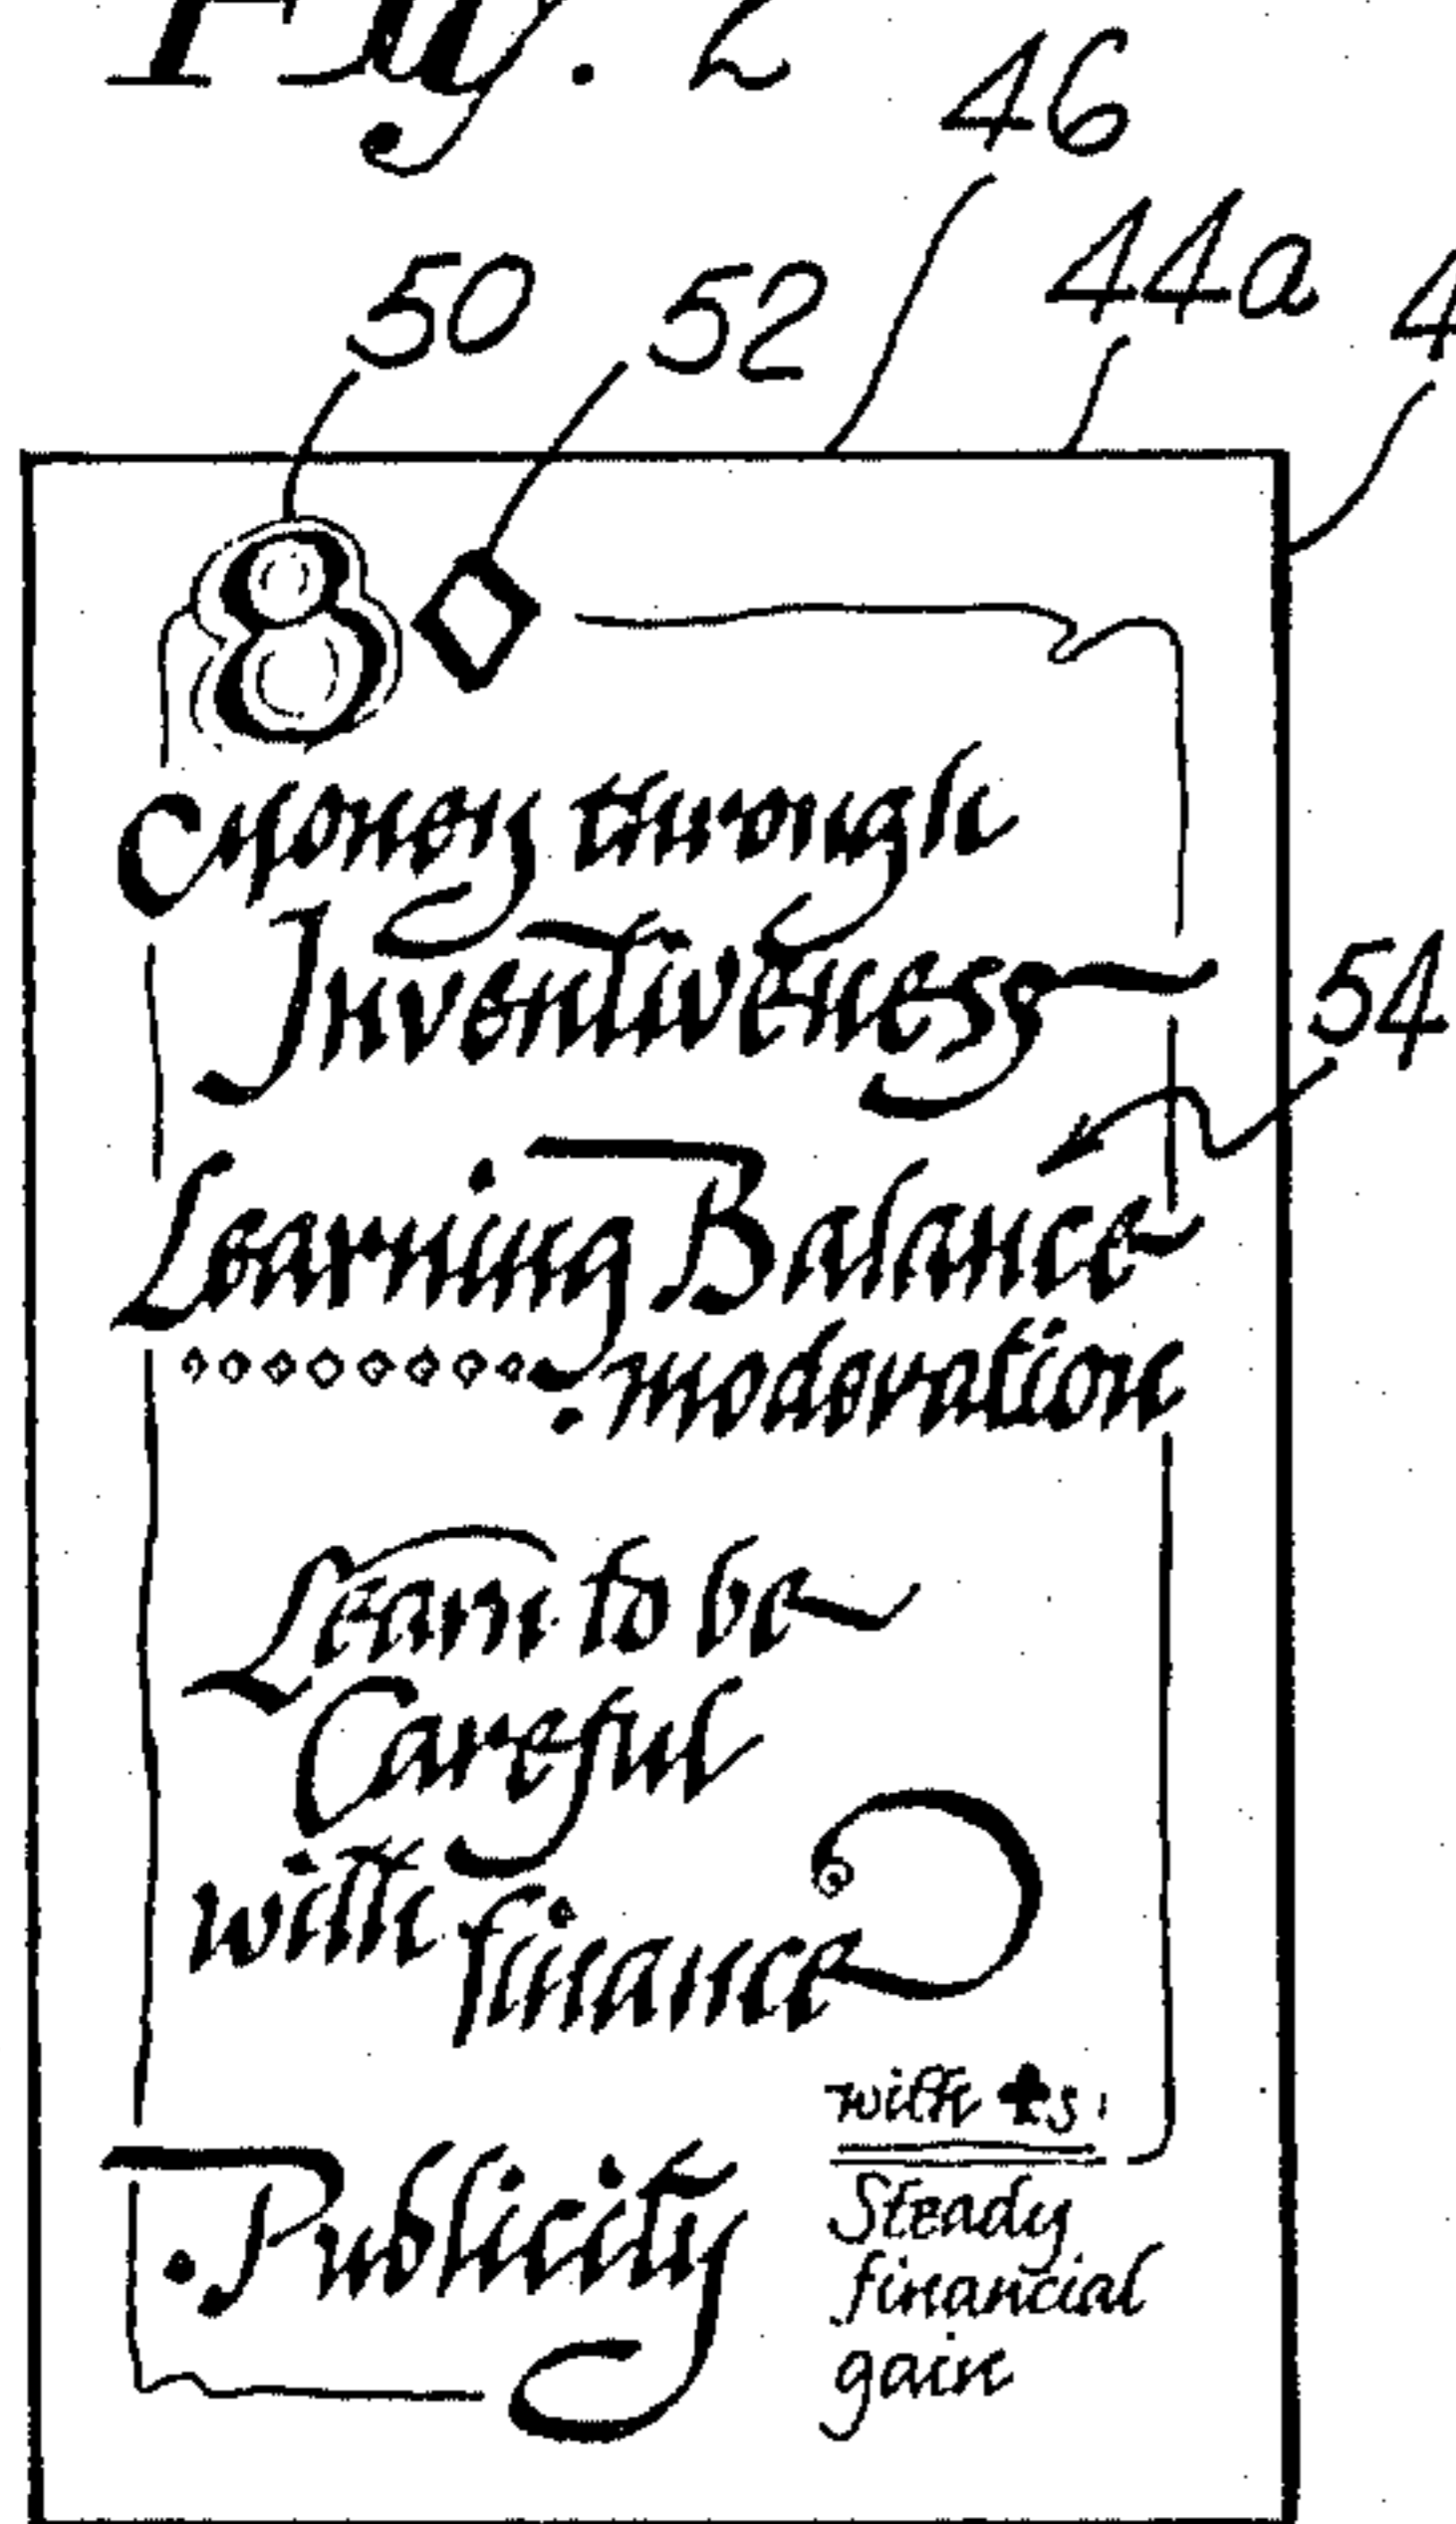 Fig. 2
46
44a
4
50 52
8
Money through
Inventiveness
54
Learning Balance
moderation
Learn to be
Careful
with finance
with ♣s
Publicity
Steady
financial
gain